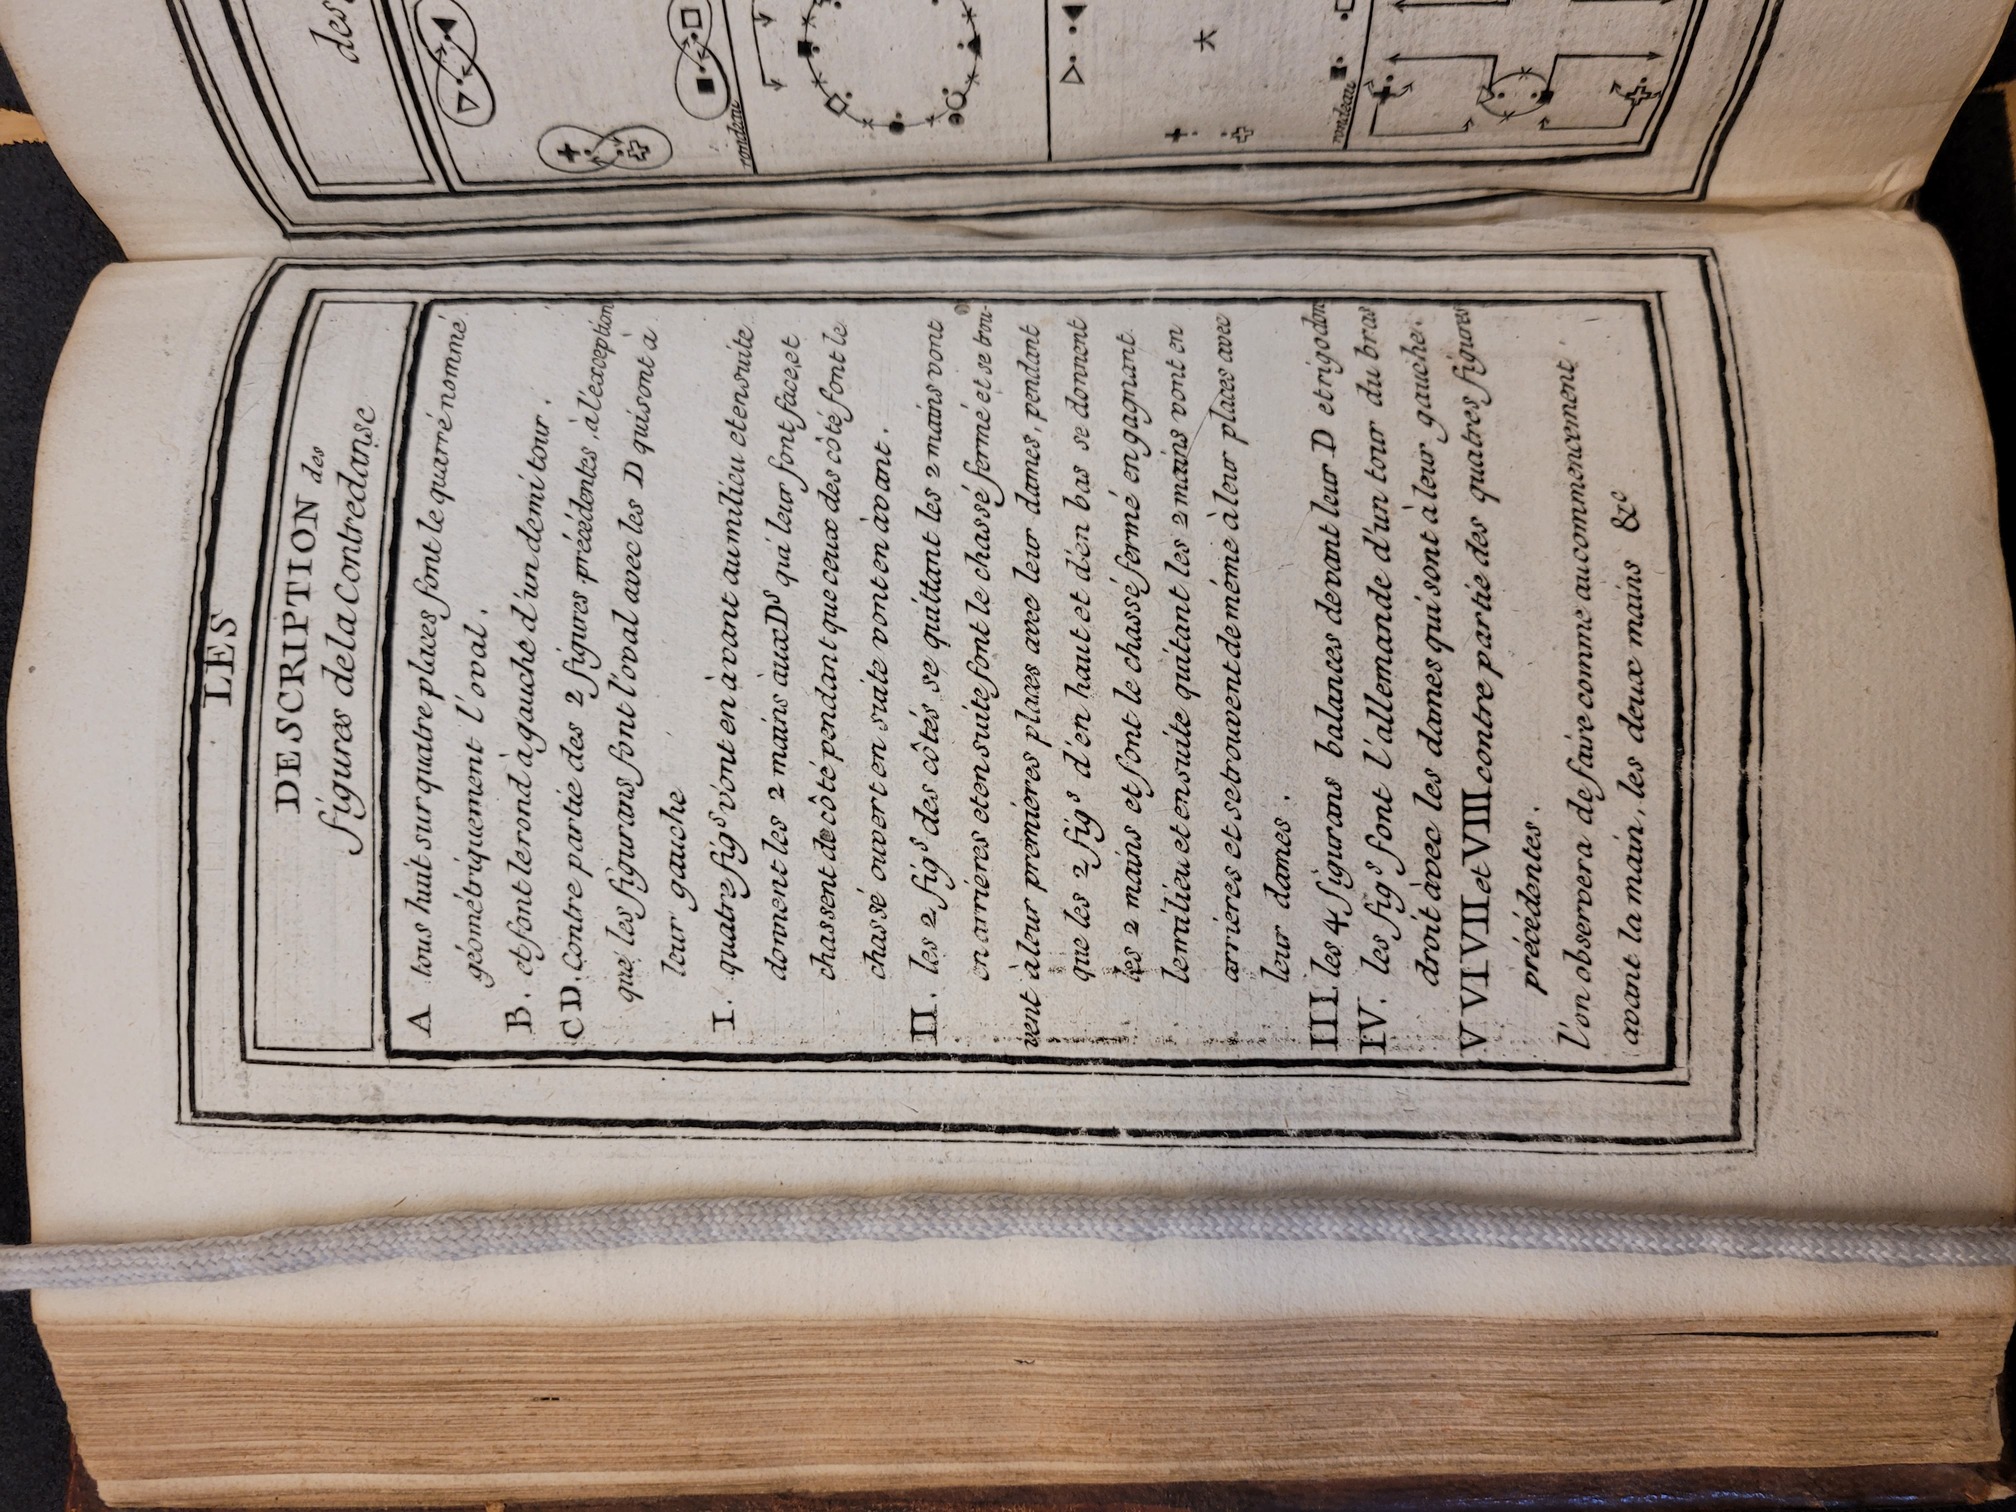 LES
DESCRIPTION des
figures de la Contredanse
A tous huit sur quatre places font le quarré nommé
géométriquement l'oval.
B. et font le rond à gauche d'un demi tour.
C D. Contre partie des 2 figures précédentes, à l'exception
que les figurans font l'oval avec les D qui sont à
leur gauche
I. quatre figs vont en àvant au milieu et ensuite
donnent les 2 mains àux Ds qui leur font face, et
chassent de côté pendant que ceux des côté font le
chassé ouvert en suite vont en àvant.
II. les 2 figs des côtés se quittant les 2 mains vont
en arrieres et en suite font le chassé fermé et se trou-
vent à leur premieres places avec leur dames, pendant
que les 2 figs d'en haut et d'en bas se donnent
les 2 mains et font le chassé fermé en gagnant
le milieu et en suite quitant les 2 mains vont en
arrieres et se trouvent de méme à leur places avec
leur dames.
III. les 4 figurans balances devant leur D et rigodon
IV. les figs font l'allemande d'un tour du bras
droit àvec les dames qui sont à leur gauche.
V VI VII et VIII contre partie des quatres figures
précédentes.
l'on observera de faire comme au commencement
avant la main, les deux mains &c
des
rondeau
rondeau